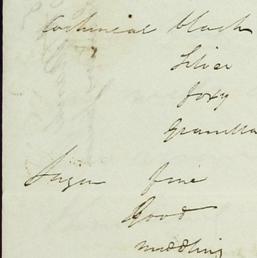 Cochineal black
Silver
foxy
Granilla
Sugar fine
Good
middling